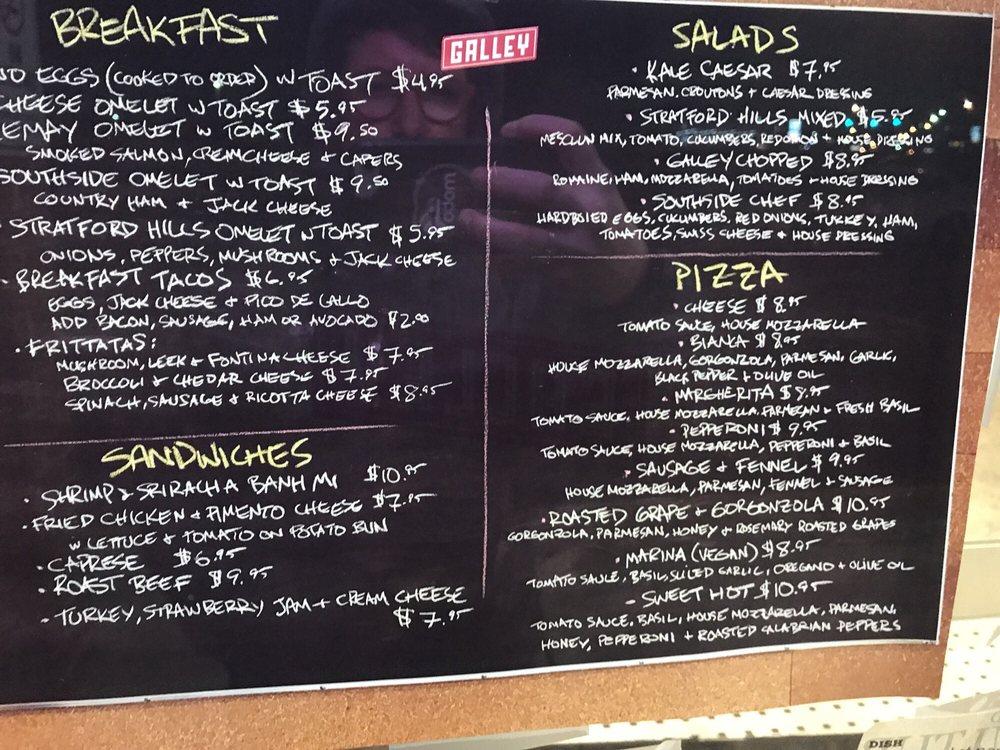 BREAKFAST
EGGS (COOKED TO ORDER) W TOAST $4.95
CHEESE OMELET W TOAST $5.95
EMAY OMELET W TOAST $9.50
SMOKED SALMON, CREAM CHEESE & CAPERS
SOUTHSIDE OMELET W TOAST $9.50
COUNTRY HAM + JACK CHEESE
STRATFORD HILLS OMELET W TOAST $5.95
ONIONS, PEPPERS, MUSHROOMS & JACK CHEESE
· BREAKFAST TACOS $6.95
EGGS, JACK CHEESE + PICO DE GALLO
ADD BACON, SAUSAGE, HAM OR AVOCADO $2.00
· FRITTATAS:
MUSHROOM, LEEK & FONTINA CHEESE $7.95
BROCCOLI & CHEDAR CHEESE $7.95
SPINACH, SAUSAGE & RICOTTA CHEESE $8.95
SANDWICHES
· SHRIMP & SRIRACHA BANH MI $10.95
· FRIED CHICKEN & PIMENTO CHEESE $7.95
W LETTUCE & TOMATO ON POTATO BUN
· CAPRESE $6.95
· ROAST BEEF $9.95
· TURKEY, STRAWBERRY JAM + CREAM CHEESE
$7.95
GALLEY
SALADS
· KALE CAESAR $7.95
PARMESAN, CROUTONS + CAESAR DRESSING
· STRATFORD HILLS MIXED $5.95
MESCLUN MIX, TOMATO, CUCUMBERS, RED ONION + HOUSE DRESSING
· GALLEY CHOPPED $8.95
ROMAINE, HAM, MOZZARELLA, TOMATOES + HOUSE DRESSING
· SOUTHSIDE CHEF $8.95
HARDBOILED EGGS, CUCUMBERS, RED ONIONS, TURKEY, HAM,
TOMATOES, SWISS CHEESE + HOUSE DRESSING
PIZZA
· CHEESE $8.95
TOMATO SAUCE, HOUSE MOZZARELLA
· BIANCA $8.95
HOUSE MOZZARELLA, GORGONZOLA, PARMESAN, GARLIC,
BLACK PEPPER + OLIVE OIL
· MARGHERITA $8.95
TOMATO SAUCE, HOUSE MOZZARELLA, PARMESAN + FRESH BASIL
· PEPPERONI $9.95
TOMATO SAUCE, HOUSE MOZZARELLA, PEPPERONI + BASIL
· SAUSAGE & FENNEL $9.95
HOUSE MOZZARELLA, PARMESAN, FENNEL + SAUSAGE
· ROASTED GRAPE & GORGONZOLA $10.95
GORGONZOLA, PARMESAN, HONEY & ROSEMARY ROASTED GRAPES
· MARINA (VEGAN) $8.95
TOMATO SAUCE, BASIL, SLICED GARLIC, OREGANO + OLIVE OIL
- SWEET HOT $10.95
TOMATO SAUCE, BASIL, HOUSE MOZZARELLA, PARMESAN,
HONEY, PEPPERONI + ROASTED CALABRIAN PEPPERS
DISH